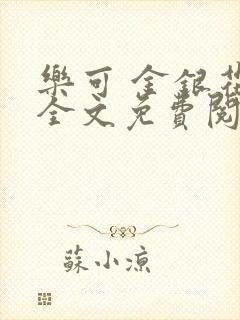 樂可 金銀花
全文免費閱
蘇小涼